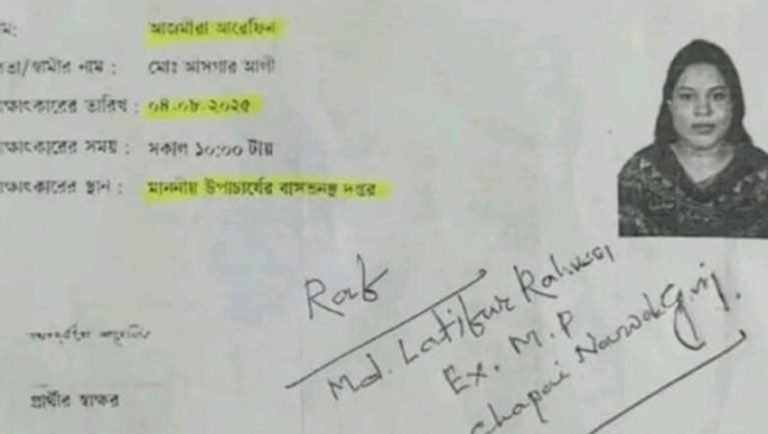 ম:
আজমীরা আরেফিন
তা/স্বামীর নাম : মোঃ আসগার আলী
ক্ষাৎকারের তারিখ : ০৪-০৮-২০২৫
ক্ষাৎকারের সময় : সকাল ১০:০০ টায়
ক্ষাৎকারের স্থান : মাননীয় উপাচার্যের বাসভবনস্থ দপ্তর
Md. Latifur Rahman
Ex. M.P
Chapai Nawabgonj.
প্রার্থীর স্বাক্ষর